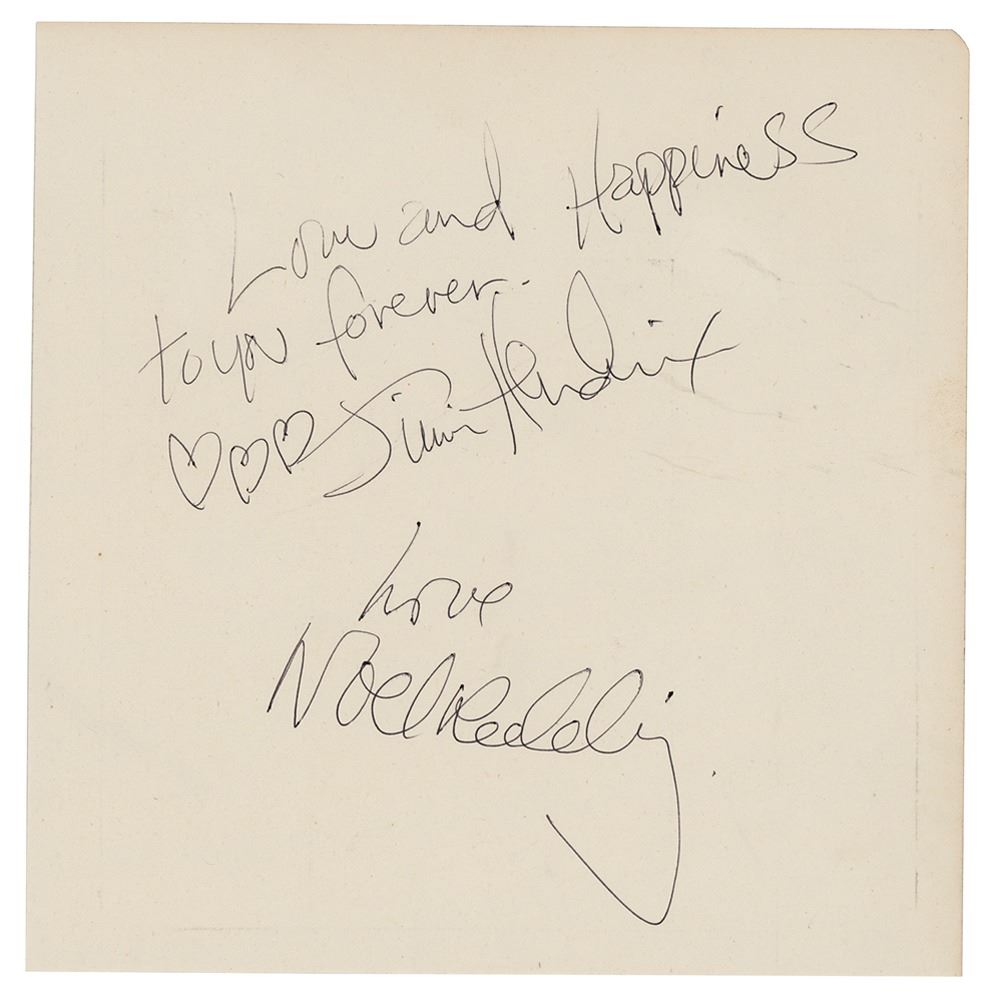 Love and Happiness
to you forever..
♡♡♡ Jimi Hendrix
Love
Noel Redding